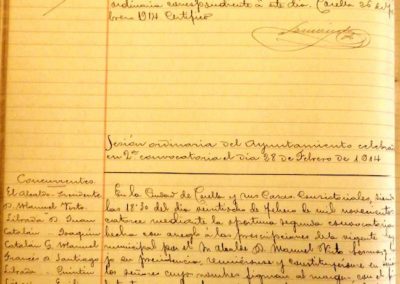 ordinaria correspondiente á este dia. Corella 26 de Fe-
brero 1914 Certifico
Sesión ordinaria del Ayuntamiento celebrada
en 2ª convocatoria el dia 28 de Febrero de 1914
Concurrentes
El Alcalde-Presidente
D. Manuel Virto
Librada D. Juan
Catalán Joaquin
Catalán G. Manuel
Francés D. Santiago
Librada Quintin
En la Ciudad de Corella y sus Casas Consistoriales, siendo
las 18'30 del dia veintiocho de febrero de mil novecientos
catorce mediante la oportuna segunda convocatoria
hecha con arreglo á las prescripciones de la vigente ley
municipal por el Sr. Alcalde D. Manuel Virto
su presidencia, reuniéronse y constituyéronse en
los señores cuyos nombres figuran al margen con el